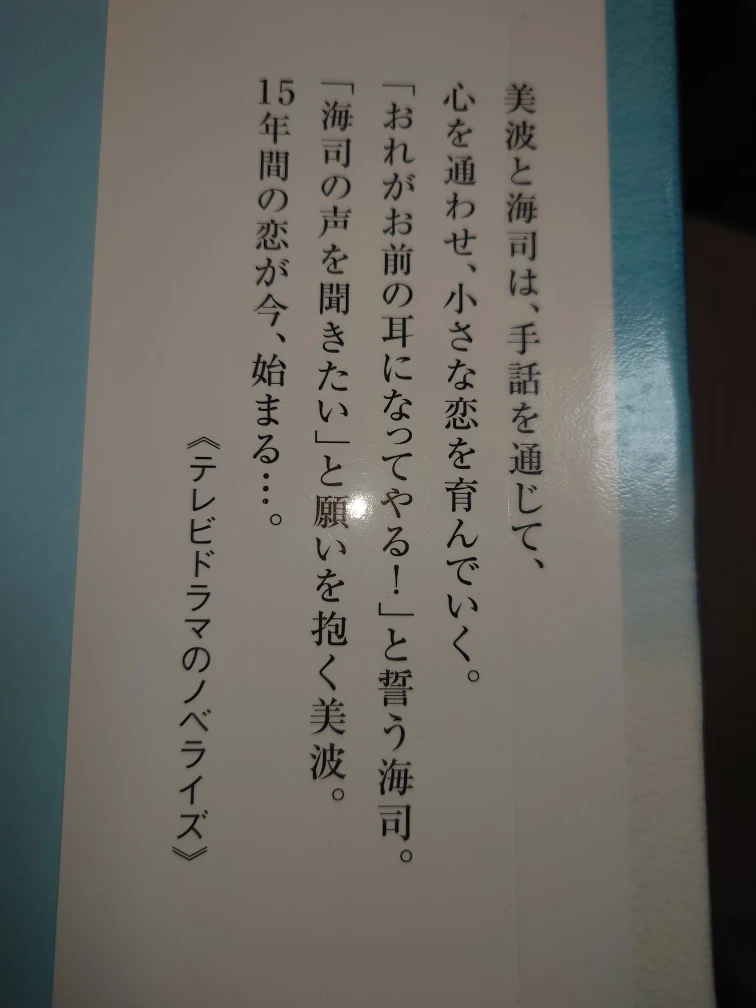 美波と海司は、手話を通じて、
心を通わせ、小さな恋を育んでいく。
「おれがお前の耳になってやる！」と誓う海司。
「海司の声を聞きたい」と願いを抱く美波。
15年間の恋が今、始まる…。
《テレビドラマのノベライズ》